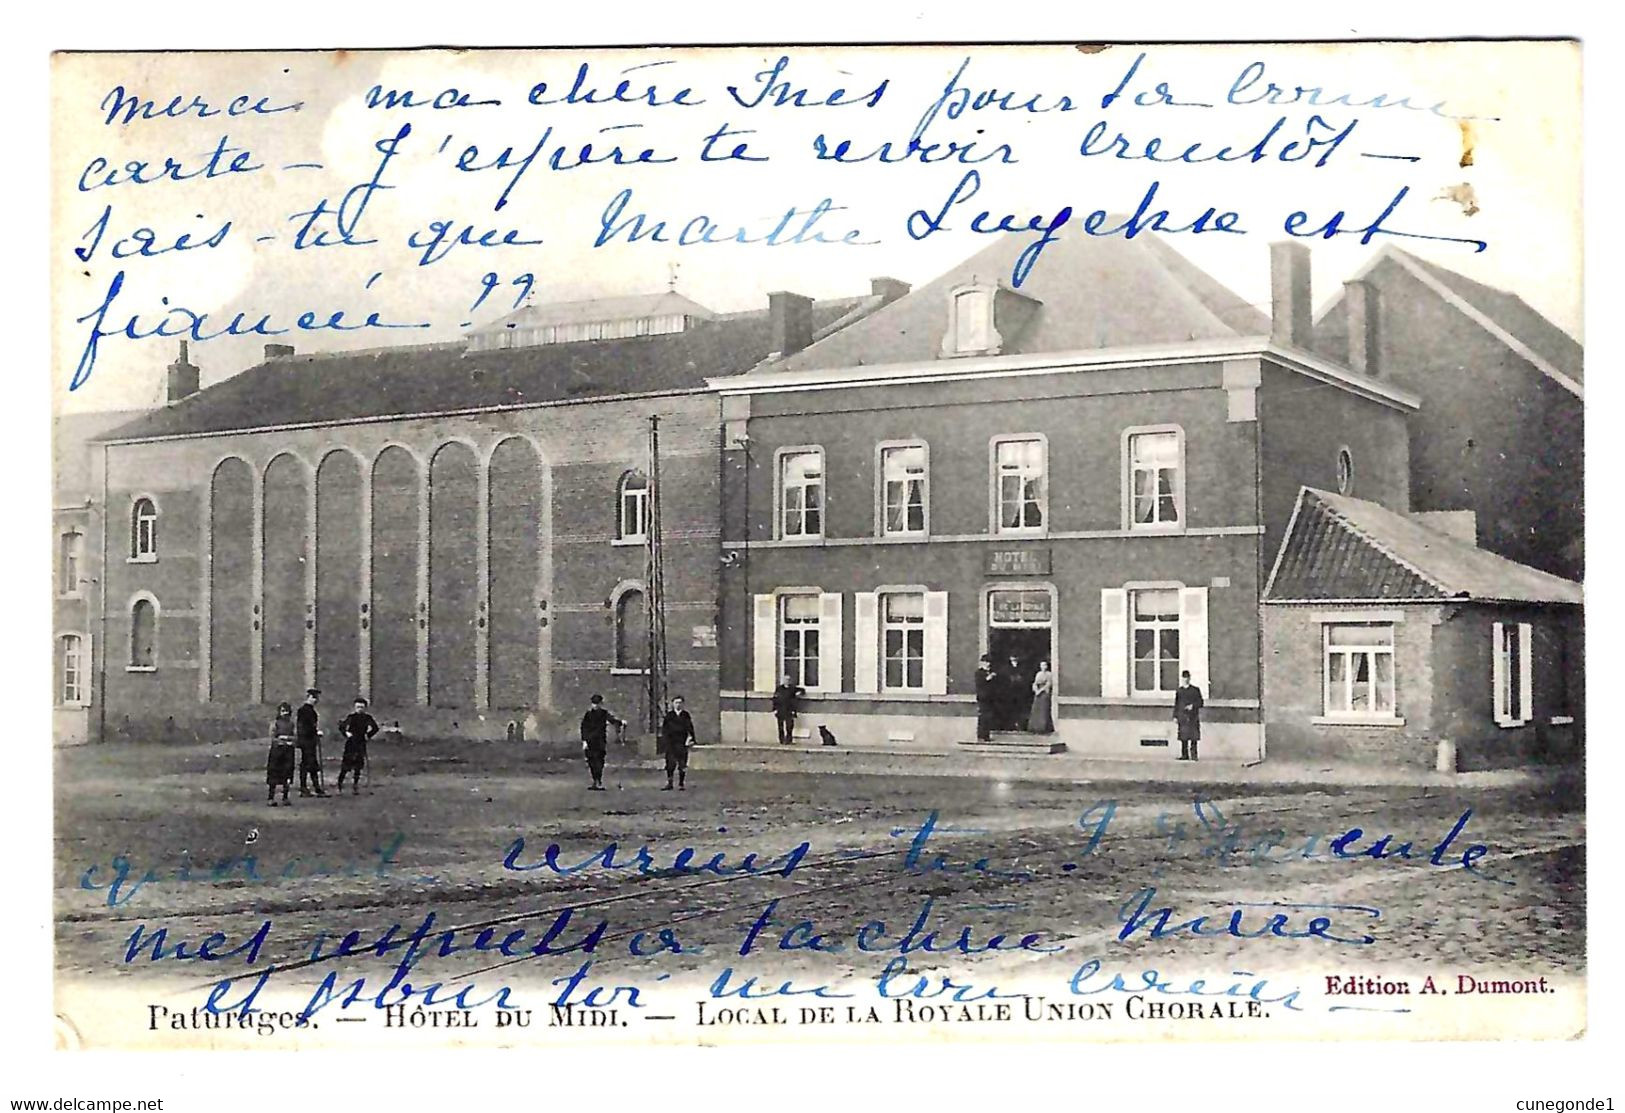 merci ma chère Inès pour ta bonne
carte – J'espère te revoir bientôt –
Sais-tu que Marthe est
fiancée !!
HOTEL
DU MIDI
quand reviens-tu ? Présente
mes respects à ta chère Mère
et pour toi un bon
Edition A. Dumont.
Paturages. — HÔTEL DU MIDI. — LOCAL DE LA ROYALE UNION CHORALE.
www.delcampe.net
cunegonde1